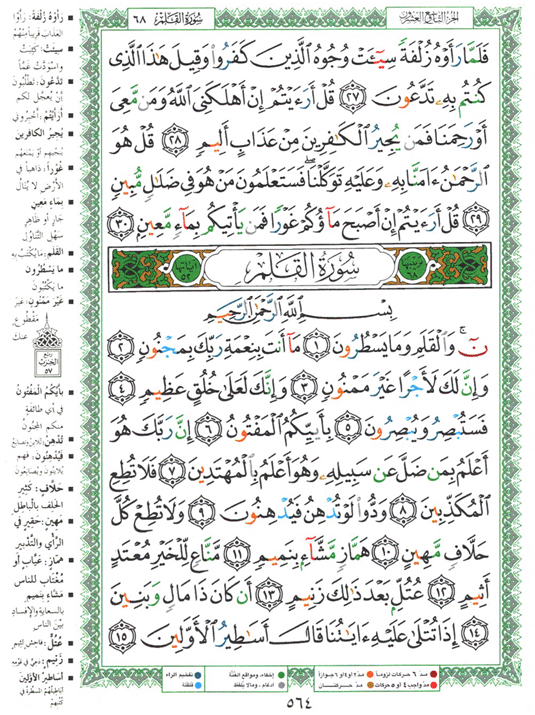 الجزء التاسع والعشرون
سُورَةُ القَلَمِ ٦٨
فَلَمَّا رَأَوْهُ زُلْفَةً سِيٓـَٔتْ وُجُوهُ ٱلَّذِينَ كَفَرُوا۟ وَقِيلَ هَٰذَا ٱلَّذِى
كُنتُم بِهِۦ تَدَّعُونَ ٢٧ قُلْ أَرَءَيْتُمْ إِنْ أَهْلَكَنِىَ ٱللَّهُ وَمَن مَّعِىَ
أَوْ رَحِمَنَا فَمَن يُجِيرُ ٱلْكَٰفِرِينَ مِنْ عَذَابٍ أَلِيمٍ ٢٨ قُلْ هُوَ
ٱلرَّحْمَٰنُ ءَامَنَّا بِهِۦ وَعَلَيْهِ تَوَكَّلْنَا ۖ فَسَتَعْلَمُونَ مَنْ هُوَ فِى ضَلَٰلٍ مُّبِينٍ
٢٩ قُلْ أَرَءَيْتُمْ إِنْ أَصْبَحَ مَآؤُكُمْ غَوْرًا فَمَن يَأْتِيكُم بِمَآءٍ مَّعِينٍۭ ٣٠
ترتيبها ٦٨ سُورَةُ القَلَمِ آياتها ٥٢
بِسْمِ ٱللَّهِ ٱلرَّحْمَٰنِ ٱلرَّحِيمِ
نٓ ۚ وَٱلْقَلَمِ وَمَا يَسْطُرُونَ ١ مَآ أَنتَ بِنِعْمَةِ رَبِّكَ بِمَجْنُونٍ ٢
وَإِنَّ لَكَ لَأَجْرًا غَيْرَ مَمْنُونٍ ٣ وَإِنَّكَ لَعَلَىٰ خُلُقٍ عَظِيمٍ ٤
فَسَتُبْصِرُ وَيُبْصِرُونَ ٥ بِأَييِّكُمُ ٱلْمَفْتُونُ ٦ إِنَّ رَبَّكَ هُوَ
أَعْلَمُ بِمَن ضَلَّ عَن سَبِيلِهِۦ وَهُوَ أَعْلَمُ بِٱلْمُهْتَدِينَ ٧ فَلَا تُطِعِ
ٱلْمُكَذِّبِينَ ٨ وَدُّوا۟ لَوْ تُدْهِنُ فَيُدْهِنُونَ ٩ وَلَا تُطِعْ كُلَّ
حَلَّافٍ مَّهِينٍ ١٠ هَمَّازٍ مَّشَّآءٍۭ بِنَمِيمٍ ١١ مَّنَّاعٍ لِّلْخَيْرِ مُعْتَدٍ
أَثِيمٍ ١٢ عُتُلٍّۭ بَعْدَ ذَٰلِكَ زَنِيمٍ ١٣ أَن كَانَ ذَا مَالٍ وَبَنِينَ
١٤ إِذَا تُتْلَىٰ عَلَيْهِ ءَايَٰتُنَا قَالَ أَسَٰطِيرُ ٱلْأَوَّلِينَ ١٥
رَأَوْهُ زُلْفَةً: رَأَوْا
العذاب قريباً منهم
سِيئَتْ: كَئِبَتْ
واسودّت غمّاً
تَدَّعُونَ: تطلبون
أن يُعجّل لكم
أَرَأَيْتُمْ: أخبروني
يُجِيرُ الكافرين
يُنجيهم أو يمنعهم
غَوْراً: ذاهباً في
الأرض لا يُنال
بماءٍ مَعين
جارٍ أو ظاهر
سهل التناول
القلم: ما يُكتب به
ما يَسْطُرون
ما يكتبون
غَيْرَ مَمْنون: غير
مقطوع
عنك
ربع
الحزب
٥٧
بأيّكم المفتون
في أيّ طائفة
منكم المجنون
حَلّاف: كثير
الحلف بالباطل
مَهين: حقير في
الرأي والتدبير
همّاز: عيّاب أو
مغتاب للناس
مشّاءٍ بنميم
بالسعاية والإفساد
بين الناس
عُتُلّ: فاحش لئيم
زنيم: دعيّ في قومه
أساطير الأولين
مدّ ٦ حركات لزوماً مدّ ٢ أو ٤ أو ٦ جوازاً
مدّ واجب ٤ أو ٥ حركات مدّ حركتان
إخفاء، ومواقع الغنّة
إدغام، وما لا يُلفظ
تفخيم الراء
قلقلة
٥٦٤